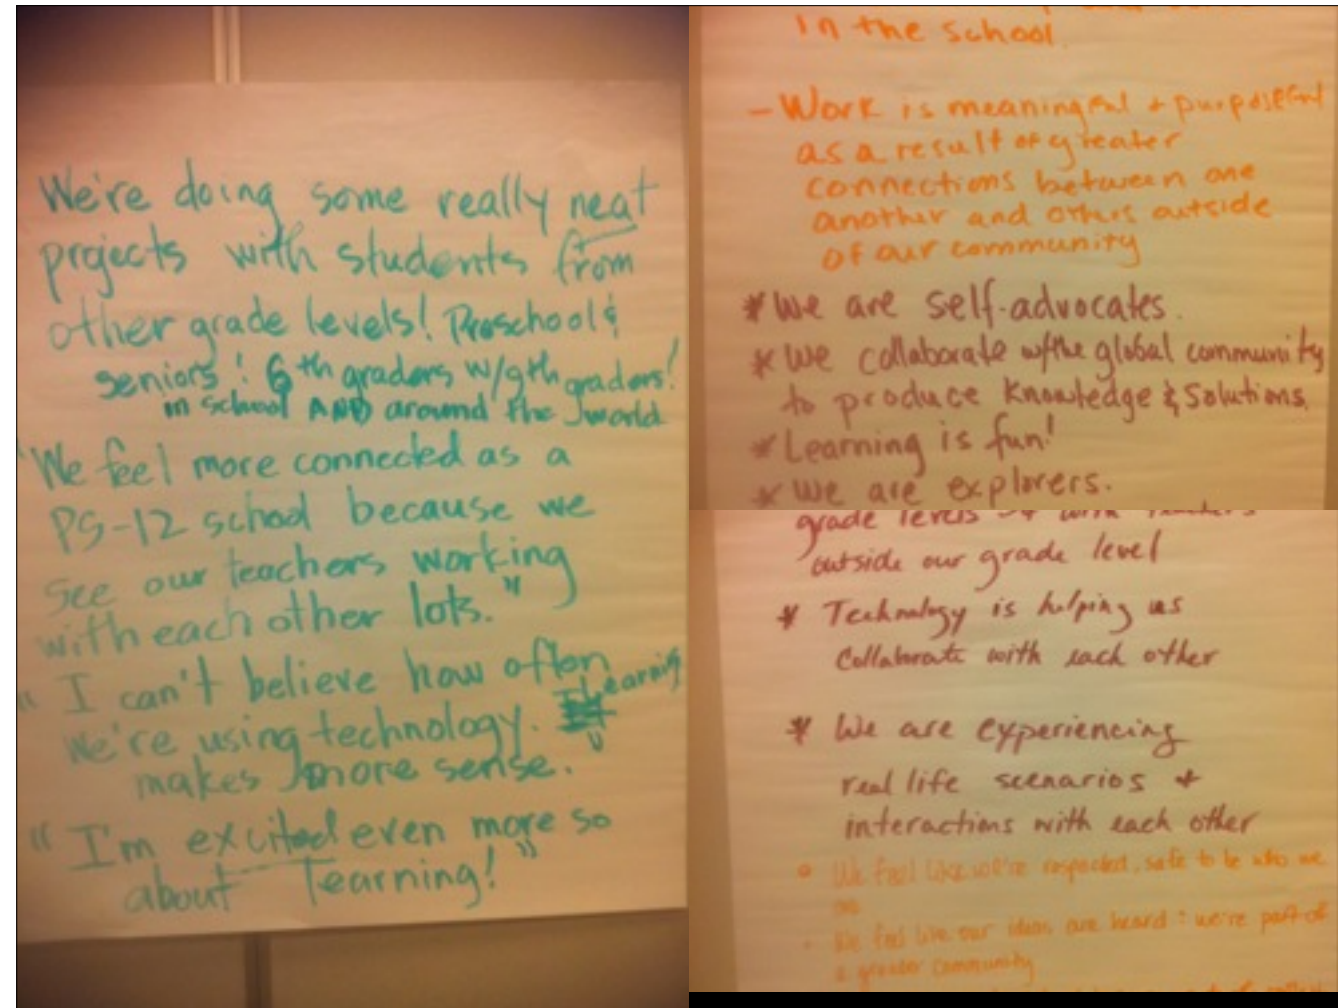 We're doing some really neat
projects with students from
other grade levels! Preschool &
seniors! 6th graders w/9th graders!
in school AND around the world
"We feel more connected as a
PS-12 school because we
see our teachers working
with each other lots."
"I can't believe how often
we're using technology. Learning
makes more sense."
"I'm excited even more so
about learning!"
in the school.
- Work is meaningful + purposeful
as a result of greater
connections between one
another and others outside
of our community
* We are self-advocates.
* We collaborate w/the global community
to produce knowledge & solutions.
* Learning is fun!
* We are explorers.
grade levels + with teachers
outside our grade level
* Technology is helping us
collaborate with each other
* We are experiencing
real life scenarios +
interactions with each other
We feel like we're respected, safe to be who we
are
We feel like our ideas are heard : we're part of
a greater community